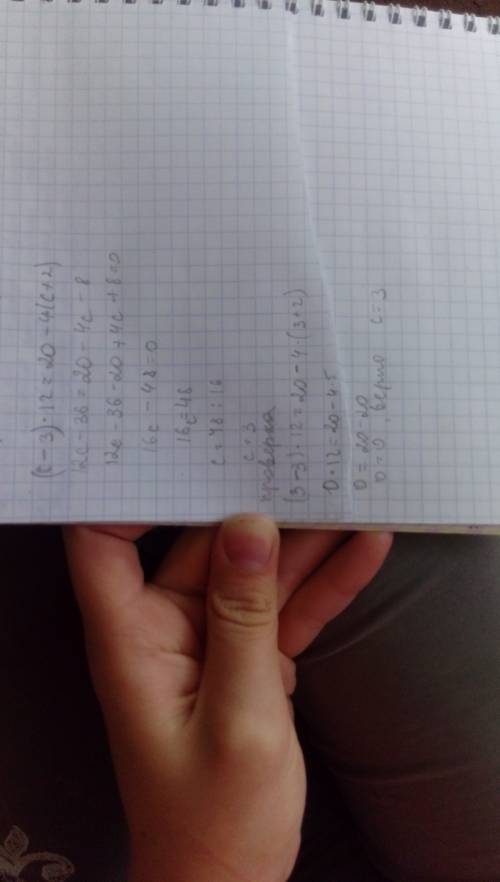 (c-3)·12=20-4(c+2)
12c-36=20-4c-8
12c-36-20+4c+8=0
16c-48=0
16c=48
c=48:16
c=3
проверка
(3-3)·12=20-4·(3+2)
0·12=20-4·5
0=20-20
0=0, верно c=3